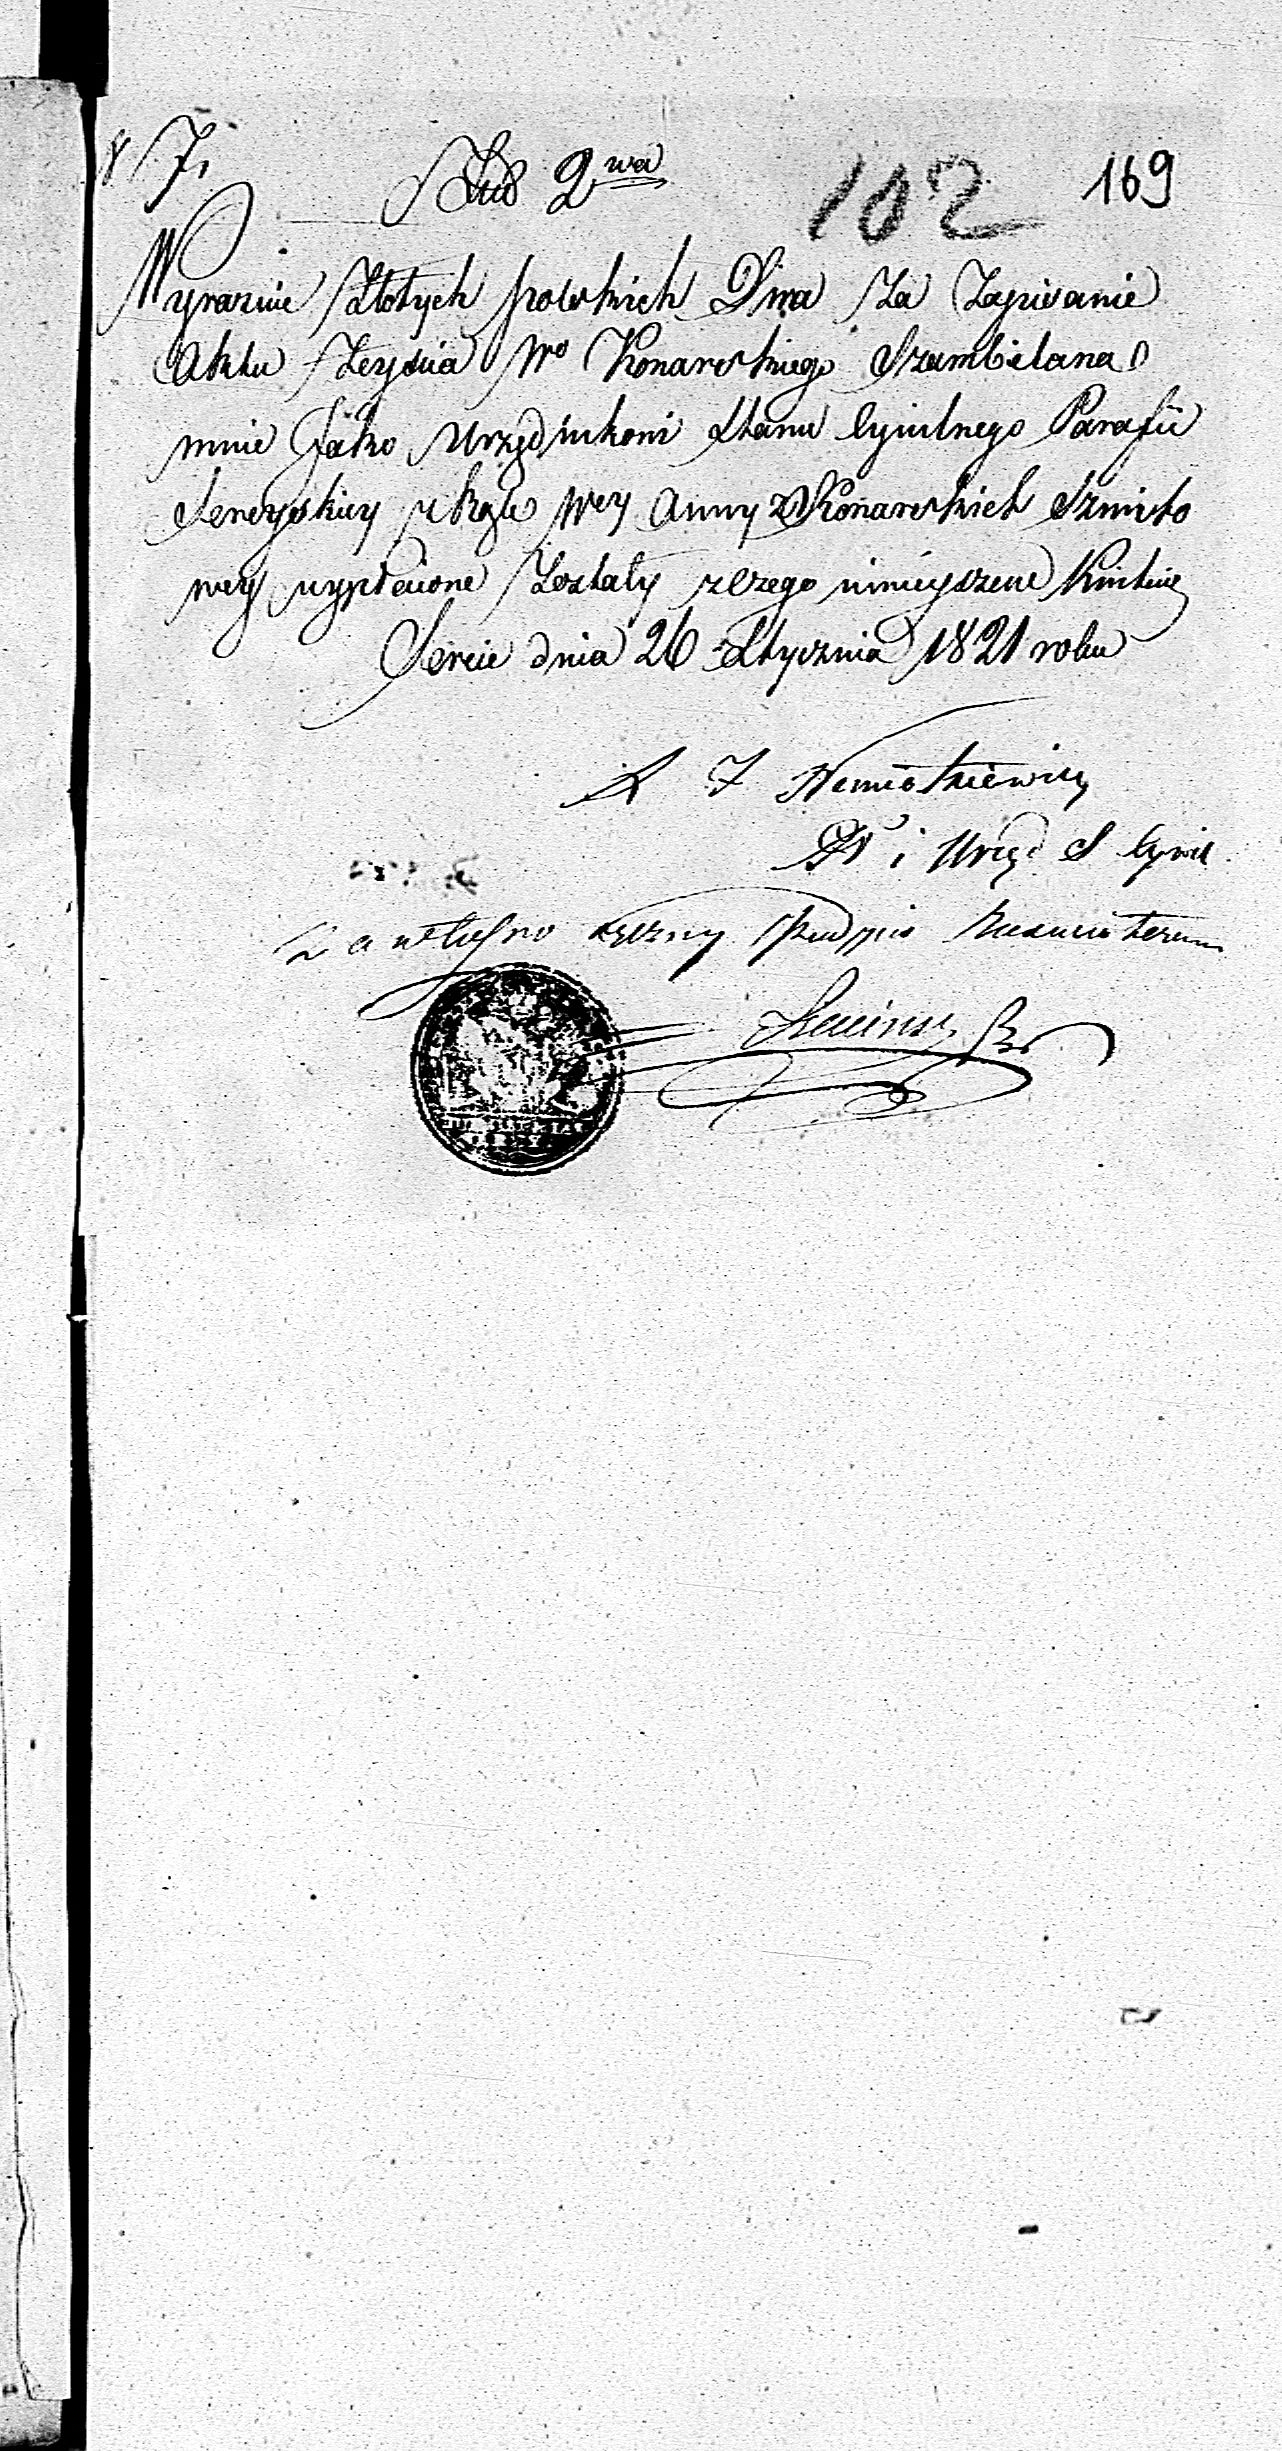 7.
102
169
2 wa
Wyraznie Złotych polskich Dwa za Zapisanie
Aktu Zeyscia Wo Konarskiego Szambelana
mnie Jako Urzędnikowi Stanu Cywilnego Parafii
Sereyskiey z Ręki Wey Anny z Konarskich Szmito
wey wypłacone Zostały z czego ninieyszem Kwituię
Sereie dnia 26 Stycznia 1821 roku
X J Niemiotkiewicz
i Urzęd S Cywil
Za własno ręczny Podpis